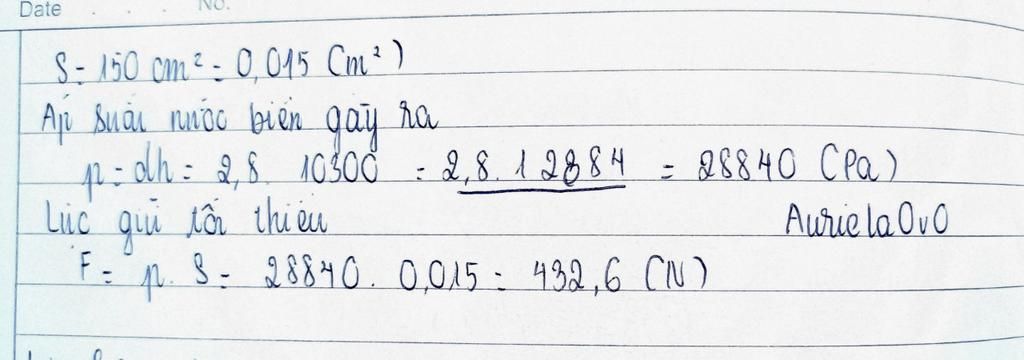 Date No.
S = 150 cm² = 0,015 (m²)
Áp suất nước biển gây ra
p = dh = 2,8. 10300 = 2,8. 1 2884 = 28840 (Pa)
Lực giữ tối thiểu
AurielaOvO
F = p. S = 28840. 0,015 = 432,6 (N)